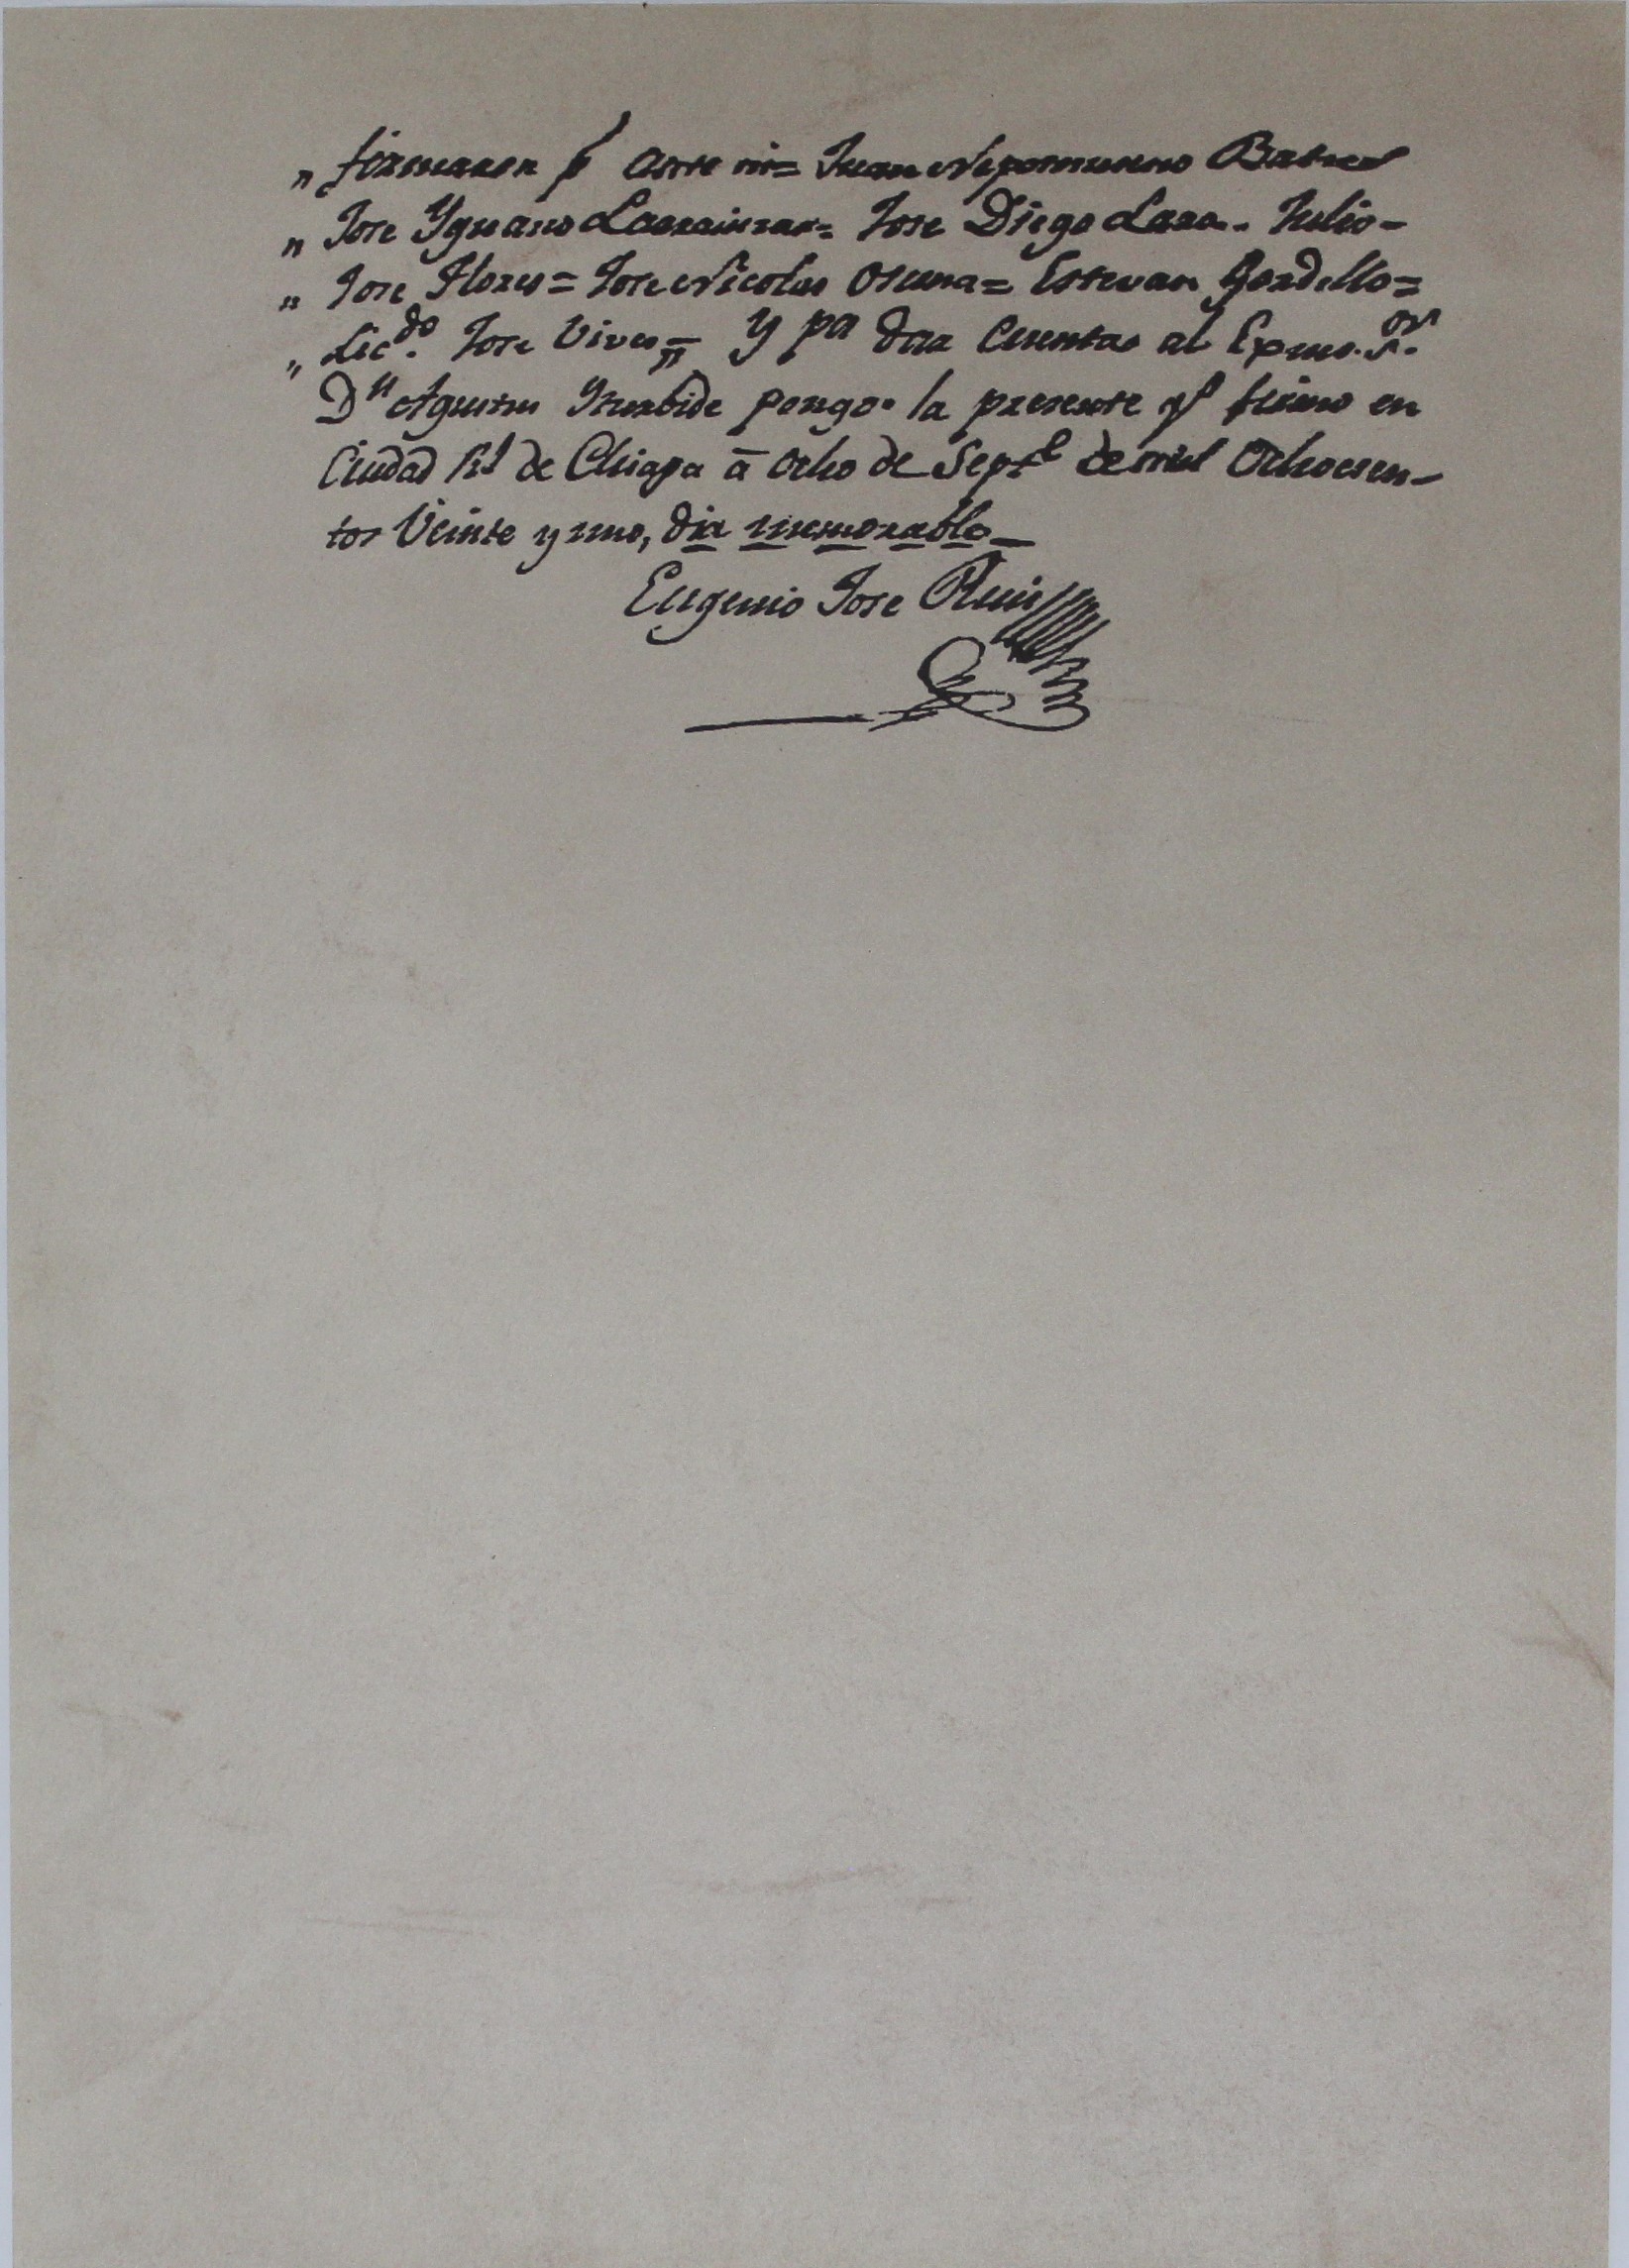 „ firmaron p ante mi= Juan Nepomuceno Batres
„ Jose Ygnacio Larrainzar= Jose Diego Lara- Julio-
„ Jose Flores= Jose Nicolas Osuna= Estevan Gordillo=
„ Licdo. Jose Vives= Y pa dar Cuenta al Exmo. Sor.
Dn Agustin Yturbide pongo la presente qe firmo en
Ciudad Rl de Chiapa á ocho de Septe de mil Ochocien-
tos Veinte y uno, dia memorable
Eugenio Jose Ruiz